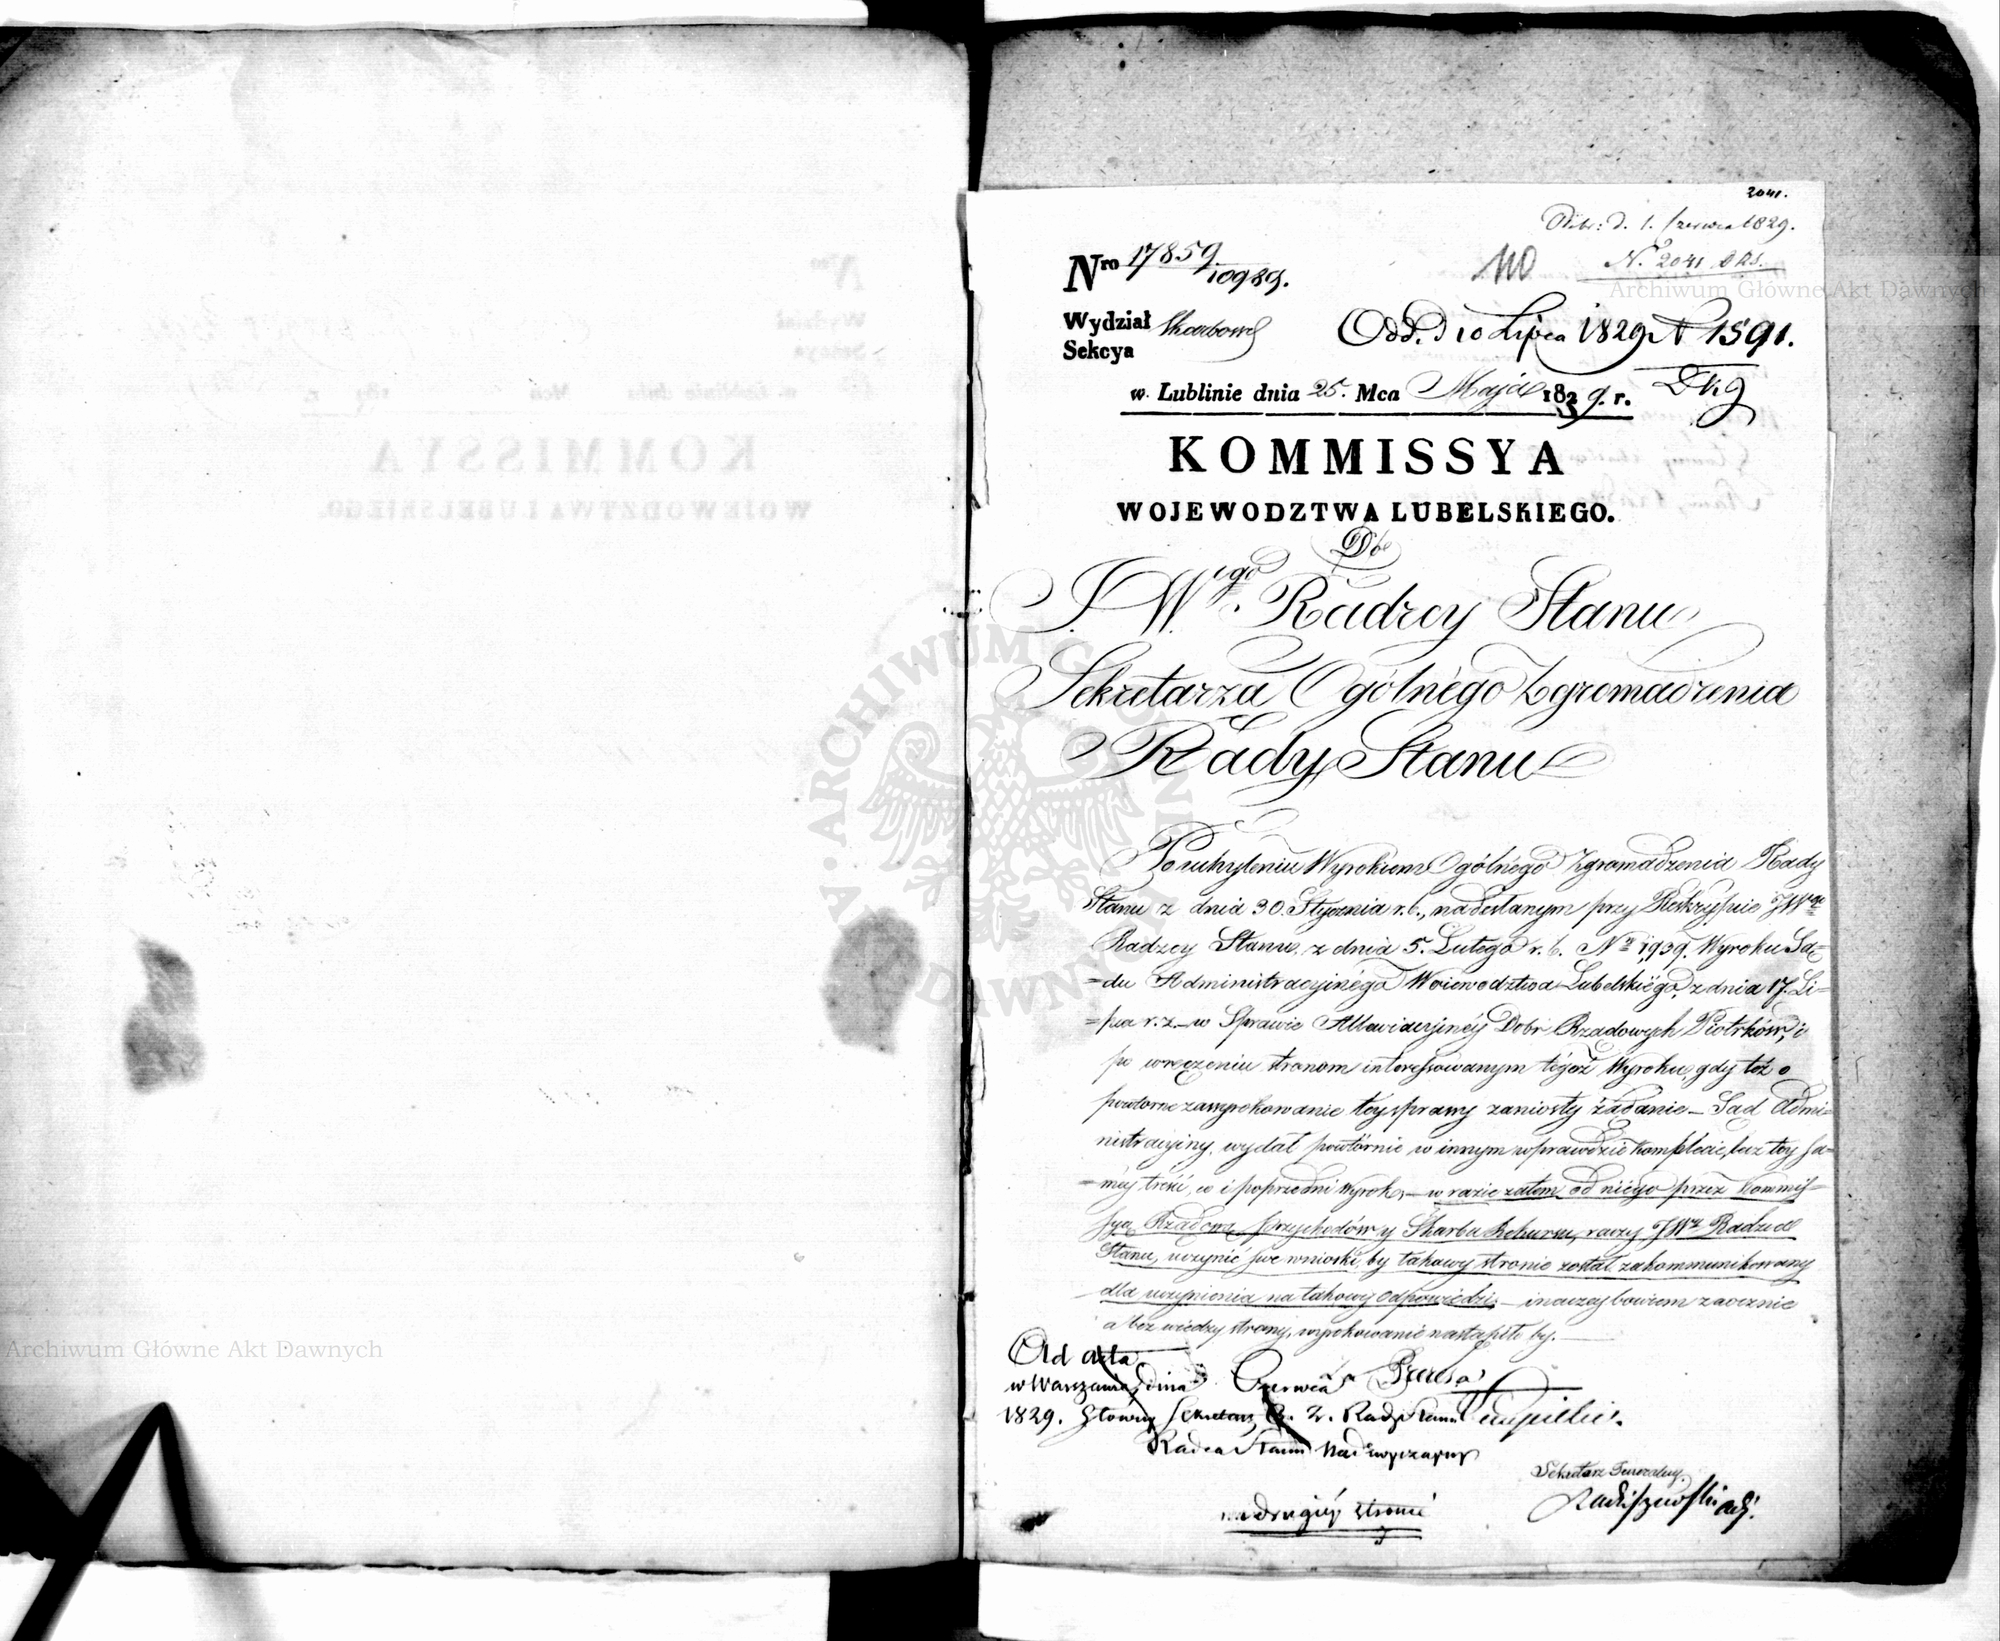 2041.
Odebr: d. 1. Czerwca 1829.
N. 2041 DKS.
110
Nro 17859/10989.
Wydział Skarbowy
Sekcya
Odd. d 10 Lipca 1829 N 1591.
DKg
w Lublinie dnia 25. Mca Maja 1829. r.
KOMMISSYA
WOJEWODZTWA LUBELSKIEGO.
Do
J. Wgo. Radzcy Stanu
Sekretarza Ogólnégo Zgromadzenia
Rady Stanu
Po uchyleniu Wyrokiem Ogólnégo Zgromadzenia Rady
Stanu z dnia 30. Stycznia r. b., nadesłanym przy Reskrypcie JWgo
Radzcy Stanu, z dnia 5. Lutego r. b. No 1,939. Wyroku Są=
=du Administracyinégo Woiewodztwa Lubelskiégo, z dnia 17. Li=
=pca r. z. w Sprawie Allewiacyinéy Dobr Rządowych Piotrków, i
po wręczeniu stronom interessowanym tegoż Wyroku, gdy też o
powtorne zawyrokowanie tey sprawy zaniosły żądanie – Sąd Admi=
nistracyiny, wydał powtórnie w innym wprawdzie komplecie, lecz tey sa=
=méy treści, co i poprzedni Wyrok, – w razie zatem od niégo przez Kommis=
syą Rządową Przychodów y Skarbu Rekursu, raczy JWy Radzca
Stanu, uczynić swe wnioski, by takowy stronie został zakommunikowany
dla uczynienia na takowy odpowiedzi, – inaczej bowiem zaocznie
a bez wiedzy strony, wyrokowanie nastąpiło by. –
Ad acta
w Warszawie dnia Czerwca
1829. Główny Sekretarz O. Z. Rady Stanu
Radca Stanu Nadzwyczajny
Prezesa
Sekretarz Generalny
Radziszewski adj.
na drugiéj stronie
Archiwum Główne Akt Dawnych
Archiwum Główne Akt Dawnych
ARCHIWUM GŁÓWNE AKT DAWNYCH